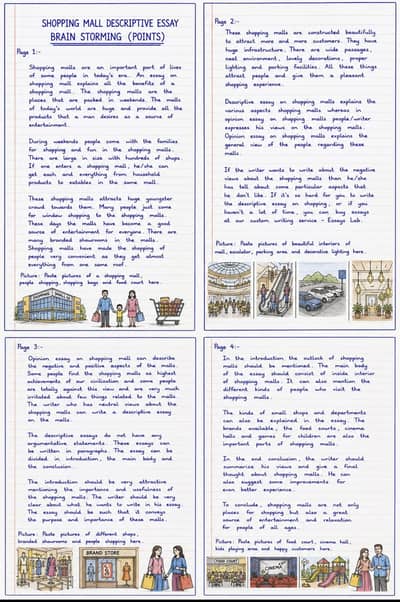 SHOPPING MALL DESCRIPTIVE ESSAY
BRAIN STORMING (POINTS)
Page 1:-
Shopping malls are an important part of lives
of some people in today's era. An essay on
shopping mall explains all the benefits of a
shopping mall. The shopping malls are the
places that are packed in weekends. The malls
of today's world are huge and provide all the
products that a man desires as a source of
entertainment.
During weekends people come with the families
for shopping and fun in the shopping malls.
There are large in size with hundreds of shops.
If one enters a shopping mall, he/she can
get each and everything from household
products to eatables in the same mall.
These shopping malls attracts huge youngster
crowd towards them. Many people just come
for window shopping to the shopping malls.
These days the malls have become a good
source of entertainment for everyone. There are
many branded showrooms in the malls.
Shopping malls have made the shopping of
people very convenient as they get almost
everything from one same roof.
Picture: Paste pictures of a shopping mall,
people shopping, shopping bags and food court here.
Page 2:-
These shopping malls are constructed beautifully
to attract more and more customers. They have
huge infrastructure. There are wide passages,
neat environment, lovely decorations, proper
lighting and parking facilities. All these things
attract people and give them a pleasant
shopping experience.
Descriptive essay on shopping malls explains the
various aspects shopping malls whereas in
opinion essay on shopping malls people/writer
expresses his views on the shopping malls.
Opinion essay on shopping malls explains the
general view of the people regarding these
malls.
If the writer wants to write about the negative
views about the shopping malls than he/she
has tell about some particular aspects that
he don't like. If it's so hard for you to write
the descriptive essay on shopping, or if you
haven't a lot of time, you can buy essays
at our custom writing service - Essays Lab.
Picture: Paste pictures of beautiful interiors of
mall, escalator, parking area and decorative lighting here.
Page 3:-
Opinion essay on shopping mall can describe
the negative and positive aspects of the malls.
Some people find the shopping malls as highest
achievements of our civilization and some people
are totally against this view and are very much
irritated about few things related to the malls.
The writer who has neutral views about the
shopping malls can write a descriptive essay
on the malls.
The descriptive essays do not have any
argumentative statements. These essays can
be written in paragraphs. The essay can be
divided in introduction, the main body and
the conclusion.
The introduction should be very attractive
mentioning the importance and usefulness of
the shopping malls. The writer should be very
clear about what he wants to write in his essay.
The essay should be such that it conveys
the purpose and importance of these malls.
Picture: Paste pictures of different shops,
branded showrooms and people shopping here.
BRAND STORE
Page 4:-
In the introduction, the outlook of shopping
malls should be mentioned. The main body
of the essay should consist of inside interior
of shopping malls. It can also mention the
different kinds of people who visit the
shopping malls.
The kinds of small shops and departments
can also be explained in the essay. The
brands available, the food courts, cinema
halls and games for children are also the
important parts of shopping malls.
In the end conclusion, the writer should
summarize his views and give a final
thought about shopping malls. He can
also suggest some improvements for
even better experience.
To conclude, shopping malls are not only
places for shopping but also a great
source of entertainment and relaxation
for people of all ages.
Picture: Paste pictures of food court, cinema hall,
kids playing area and happy customers here.
FOOD COURT
CINEMA